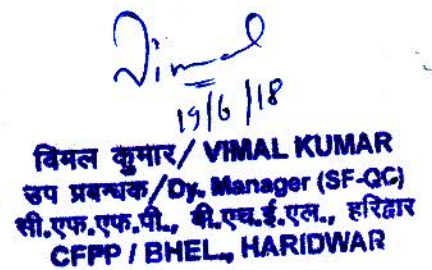 Vimal
19/6/18
विमल कुमार/ VIMAL KUMAR
उप प्रबन्धक/Dy. Manager (SF-QC)
सी.एफ.एफ.पी., बी.एच.ई.एल., हरिद्वार
CFPP / BHEL., HARIDWAR